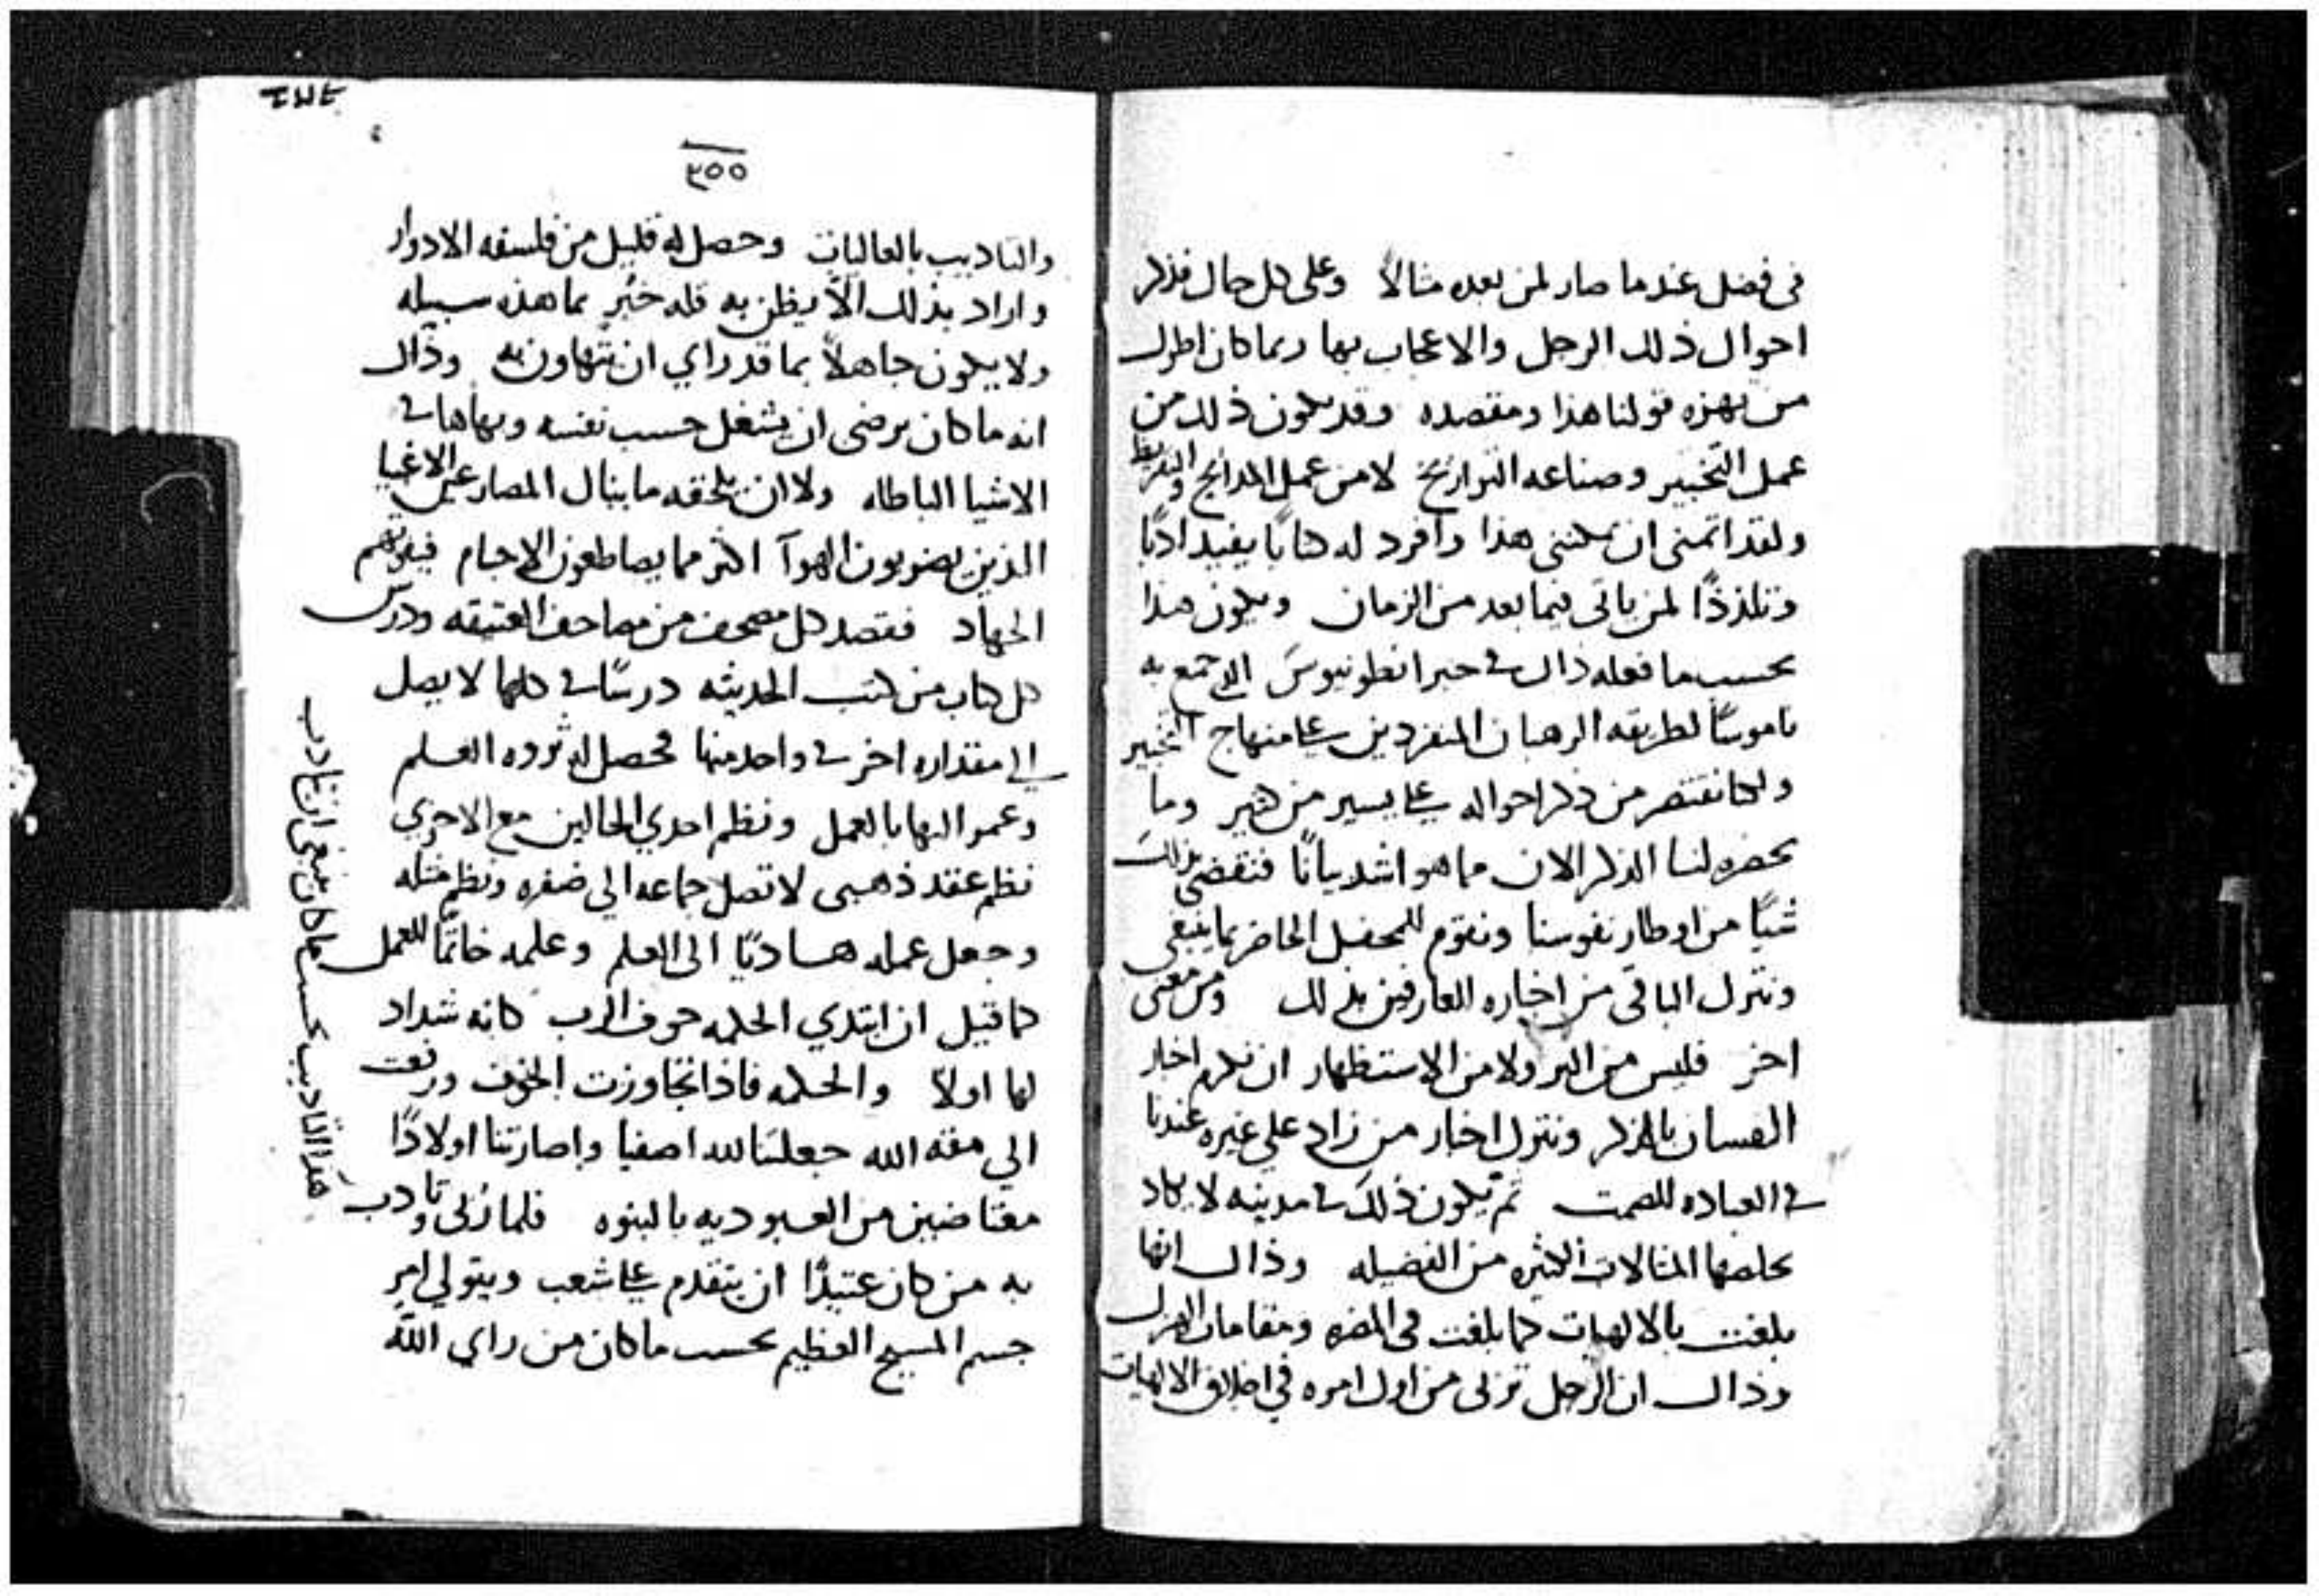 في فضل عندما صار لمن بعده مثالاً وعلى كل حال فذكر
احوال ذلك الرجل والاعجاب بها ربما كان اطول
من نهزه قولنا هذا ومقصده وقد يكون ذلك من
عمل التخبير وصناعه التواريخ لا من عمل المدائح والتقريظ
ولقد اتمنى ان يمكنني هذا وافرد له كتابًا يفيد ادبًا
وتلذذًا لمن ياتي فيما بعد من الزمان ويكون هذا
بحسب ما فعله ذاك في خبر انطونيوس الذي جمع به
ناموسًا لطريقه الرهبان المنفردين على منهاج التخبير
ولكنا نقتصر من ذكر احواله على يسير من كثير وما
يحضره لنا الذكر الان مما هو اشد بيانًا فنقضي بذلك
شيًا من اوطار نفوسنا ونقوم للمحفل الحاضر بما ينبغي
ونترك الباقي من اخباره للعارفين بذلك ومن معنى
اخر فليس من البر ولا من الاستظهار ان نكرم اخبار
الفساق بالذكر ونترك اخبار من زاد على غيره عندنا
في العباده للصمت ثم يكون ذلك في مدينه لا يكاد
يخلصها المثالات الكثيره من الفضيله وذاك انها
بلغت بالالهيات كما بلغت في المضره ومقامات الهزل
وذاك ان الرجل تربى من اول امره في اخلاق الالهيات
٢٥٥
والتاديب بالعاليات وحصل له قليل من فلسفه الادوار
واراد بذلك الاّ يظن به قله خبر بما هذه سبيله
ولا يكون جاهلاً بما قد راي ان يتهاون به وذاك
انه ما كان يرضى ان يشغل حسب نفسه وبهاها في
الاشيا الباطله ولا ان يلحقه ما ينال المصارعين الاغبيا
الذين يضربون الهوآ اكثر مما يصاطعون الاجسام فيفوتهم
الجهاد فقصد كل مصحف من مصاحف العتيقه ودرس
كل كتاب من كتب الحديثه درسًا في كلها لا يصل
الى مقداره اخر في واحد منها فحصل له ثروه العلم
وعمر البها بالعمل ونظم احدي الحالين مع الاخري
نظم عقد ذهبي لا تصل جماعه الى ضفره ونظم مثله
وجعل عمله هاديًا الى العلم وعلمه خاتمًا للعمل
كما قيل ان ابتدي الحكمه خوف الرب كانه شداد
لها اولاً والحكمه فاذا تجاوزت الخوف ورقت
الى مقه الله جعلتنا لله اصفيا واصارتنا اولادًا
معتاضين من العبوديه بالبنوه فلما تربى وتادب
به من كان عتيدًا ان يتقدم على شعب ويتولي امر
جسم المسيح العظيم بحسب ما كان من راي الله
هذا التاديب بحسب ما كان ينبغي ان يتادب